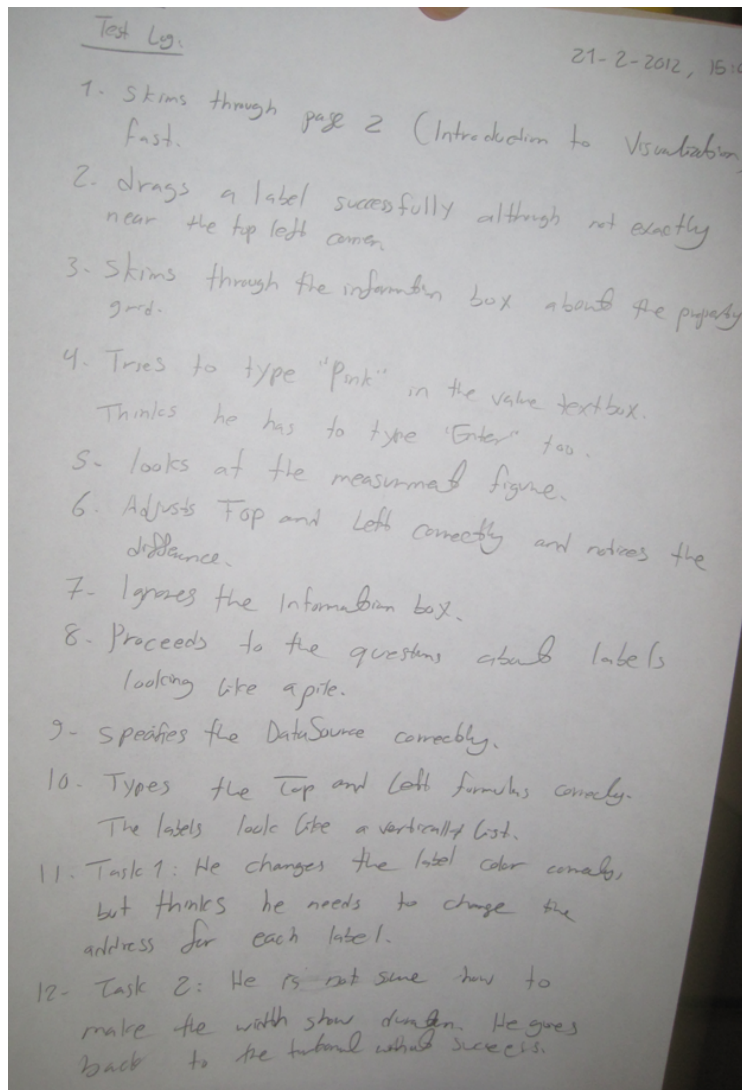 Test Log:
21-2-2012, 15:
1- Skims through page 2 (Introduction to Visualization)
fast.
2. drags a label successfully although not exactly
near the top left corner
3- Skims through the information box about the property
grid.
4. Tries to type "Pink" in the value textbox.
Thinks he has to type "Enter" too.
5- looks at the measurment figure.
6. Adjusts Top and Left correctly and notices the
difference.
7- Ignores the Information box.
8- Proceeds to the questions about labels
looking like a pile.
9- specifies the DataSource correctly.
10. Types the Top and Left formulas correctly.
The labels look like a vertically list.
11. Task 1: He changes the label color correctly,
but thinks he needs to change the
address for each label.
12- Task 2: He is not sure how to
make the width show duration. He goes
back to the tutorial without success.